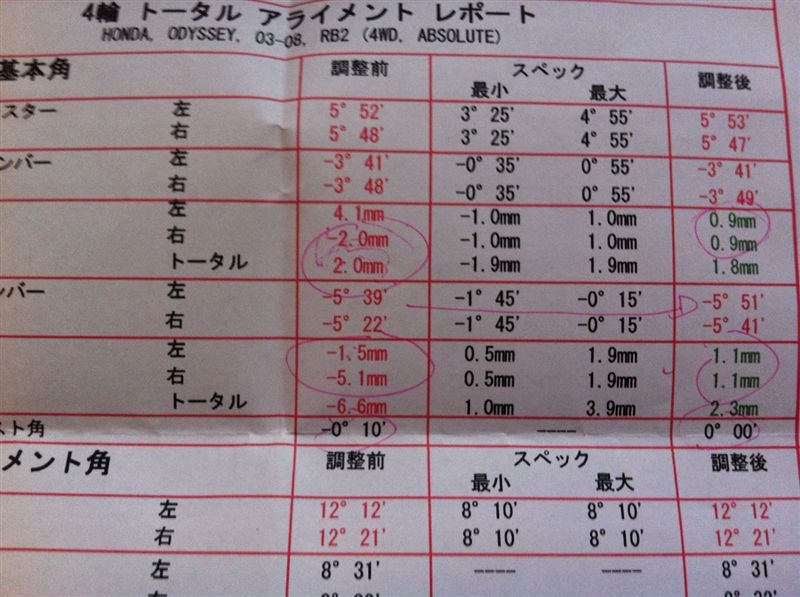 4輪 トータル アライメント レポート
HONDA, ODYSSEY, 03-08, RB2 (4WD, ABSOLUTE)
基本角 調整前 スペック 調整後
最小 最大
スター 左 5° 52' 3° 25' 4° 55' 5° 53'
右 5° 48' 3° 25' 4° 55' 5° 47'
ンバー 左 -3° 41' -0° 35' 0° 55' -3° 41'
右 -3° 48' -0° 35' 0° 55' -3° 49'
左 4.1mm -1.0mm 1.0mm 0.9mm
右 -2.0mm -1.0mm 1.0mm 0.9mm
トータル 2.0mm -1.9mm 1.9mm 1.8mm
ンバー 左 -5° 39' -1° 45' -0° 15' -5° 51'
右 -5° 22' -1° 45' -0° 15' -5° 41'
左 -1.5mm 0.5mm 1.9mm 1.1mm
右 -5.1mm 0.5mm 1.9mm 1.1mm
トータル -6.6mm 1.0mm 3.9mm 2.3mm
スト角 -0° 10' ---- 0° 00'
メント角 調整前 スペック 調整後
最小 最大
左 12° 12' 8° 10' 8° 10' 12° 12'
右 12° 21' 8° 10' 8° 10' 12° 21'
左 8° 31' ---- ---- 8° 31'